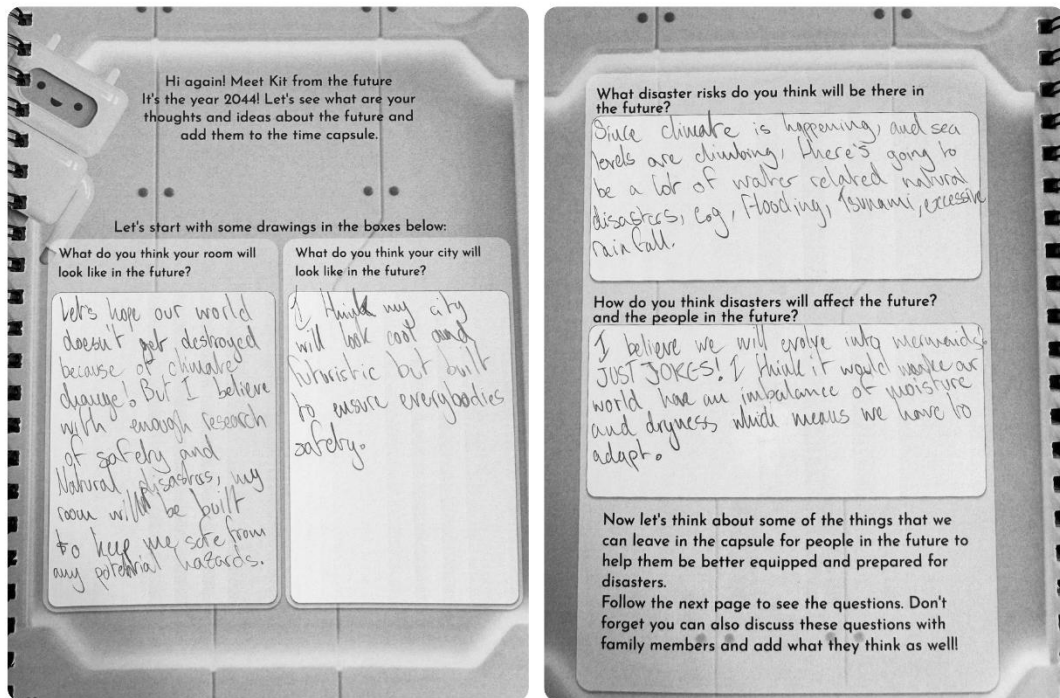 Hi again! Meet Kit from the future
It's the year 2044! Let's see what are your
thoughts and ideas about the future and
add them to the time capsule.
Let's start with some drawings in the boxes below:
What do you think your room will
look like in the future?
Let's hope our world
doesn't get destroyed
because of climate
change! But I believe
with enough research
of safety and
Natural disastrs, my
room will be built
to keep me safe from
any potential hazards.
What do you think your city will
look like in the future?
I think my city
will look cool and
futuristic but built
to ensure everybodies
safety.
What disaster risks do you think will be there in
the future?
Since climate is happening, and sea
levels are climbing, there's going to
be a lot of water related natural
disasters, e.g, Flooding, Tsunami, excessive
rainfall.
How do you think disasters will affect the future?
and the people in the future?
I believe we will evolve into mermaids!
JUST JOKES! I think it would make our
world have an imbalance of moisture
and dryness which means we have to
adapt.
Now let's think about some of the things that we
can leave in the capsule for people in the future to
help them be better equipped and prepared for
disasters.
Follow the next page to see the questions. Don't
forget you can also discuss these questions with
family members and add what they think as well!